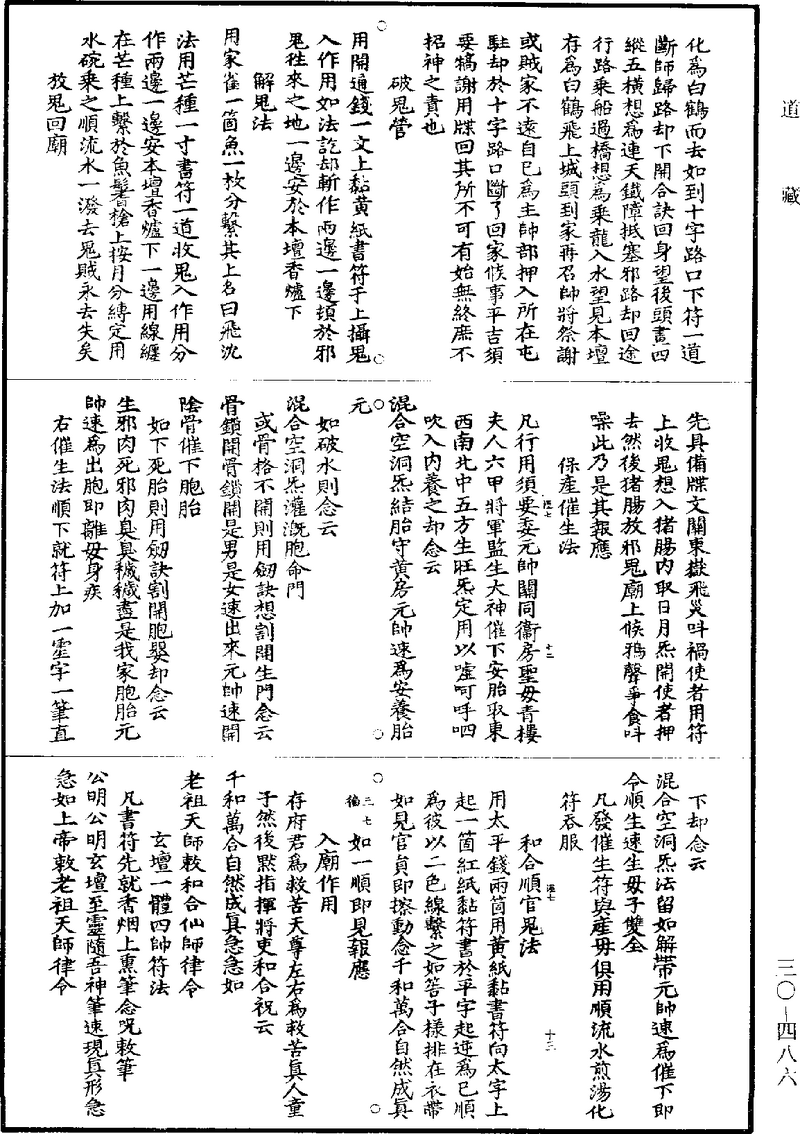 道藏
化為白鶴而去如到十字路口下符一道
斷師歸路却下開合訣回身望後頭畫四
縱五橫想為連天鐵障抵塞邪路却回途
行路乘船過橋想為乘龍入水望見本壇
存為白鶴飛上城頭到家再召師將祭謝
或賊家不遠自已為主帥部押入所在屯
駐却於十字路口斷了回家候事平吉須
要犒謝用牒回其所不可有始無終庶不
招神之責也
破鬼營
用開通錢一文上黏黃紙書符于上攝鬼
入作用如法訖却斬作兩邊一邊埧於邪
鬼徃來之地一邊安於本壇香爐下
解鬼法
用家雀一箇魚一枚分繫其上名曰飛沈
法用芒種一寸書符一道收鬼入作用分
作兩邊一邊安本壇香爐下一邊用線纏
在芒種上繫於魚鬐槍上按月分縛定用
水碗乘之順流水一潑去鬼賊永去失矣
放鬼回廟
先具備牒文關東嶽飛災呌禍使者用符
上收鬼想入猪腸內取日月炁開使者押
去然後猪腸放邪鬼廟上候鴉聲爭食呌
噪此乃是其報應
保產催生法
凡行用須要委元帥關同衞房聖母青樓
夫人六甲將軍監生大神催下安胎取東
西南北中五方生旺炁定用以噓呵呼呬
吹入內養之却念云
混合空洞炁結胎守黃房元帥速為安養胎
元
如破水則念云
混合空洞炁灌溉胞命門
或骨格不開則用劒訣想割開生門念云
骨鎖開骨鎖開是男是女速出來元帥速開
陰骨催下胞胎
如下死胎則用劒訣割開胞嬰却念云
生邪肉死邪肉臭臭穢穢盡是我家胞胎元
帥速為出胞即離母身疾
右催生法順下就符上加一䨠字一筆直
下却念云
混合空洞炁法留如解帶元帥速為催下即
令順生速生母子雙全
凡發催生符與產母俱用順流水煎湯化
符吞服
和合順官鬼法
用太平錢兩箇用黃紙黏書符向太字上
起一箇紅紙黏符書於平字起逆為已順
為彼以二色線繫之如筶子樣排在衣帶
如見官員即擦動念千和萬合自然成眞
如一順即見報應
入廟作用
存府君為救苦天尊左右為救苦眞人童
子然後黙指揮將吏和合祝云
千和萬合自然成眞急急如
老祖天師敕和合仙師律令
玄壇一體四帥符法
凡書符先就香烟上熏筆念呪敕筆
公明公明玄壇至靈隨吾神筆速現眞形急
急如上帝敕老祖天師律令
三〇－四八六